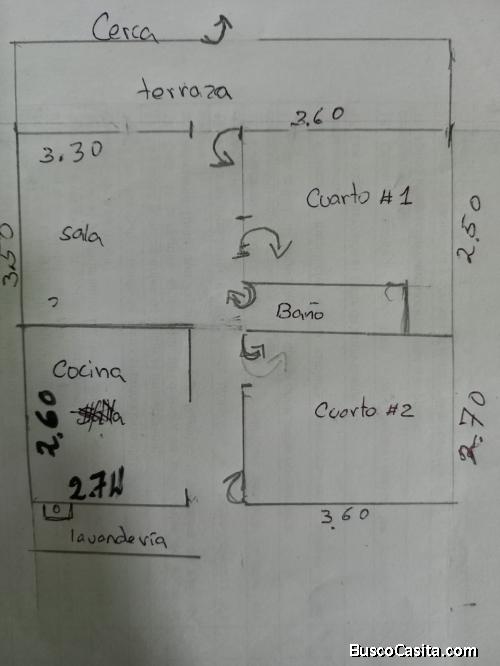 Cerca
terraza
3.60
3.30
Cuarto #1
2.50
sala
3.50
Baño
Cocina
Cuarto #2
2.60
2.70
3.60
lavandería
BuscoCasita.com